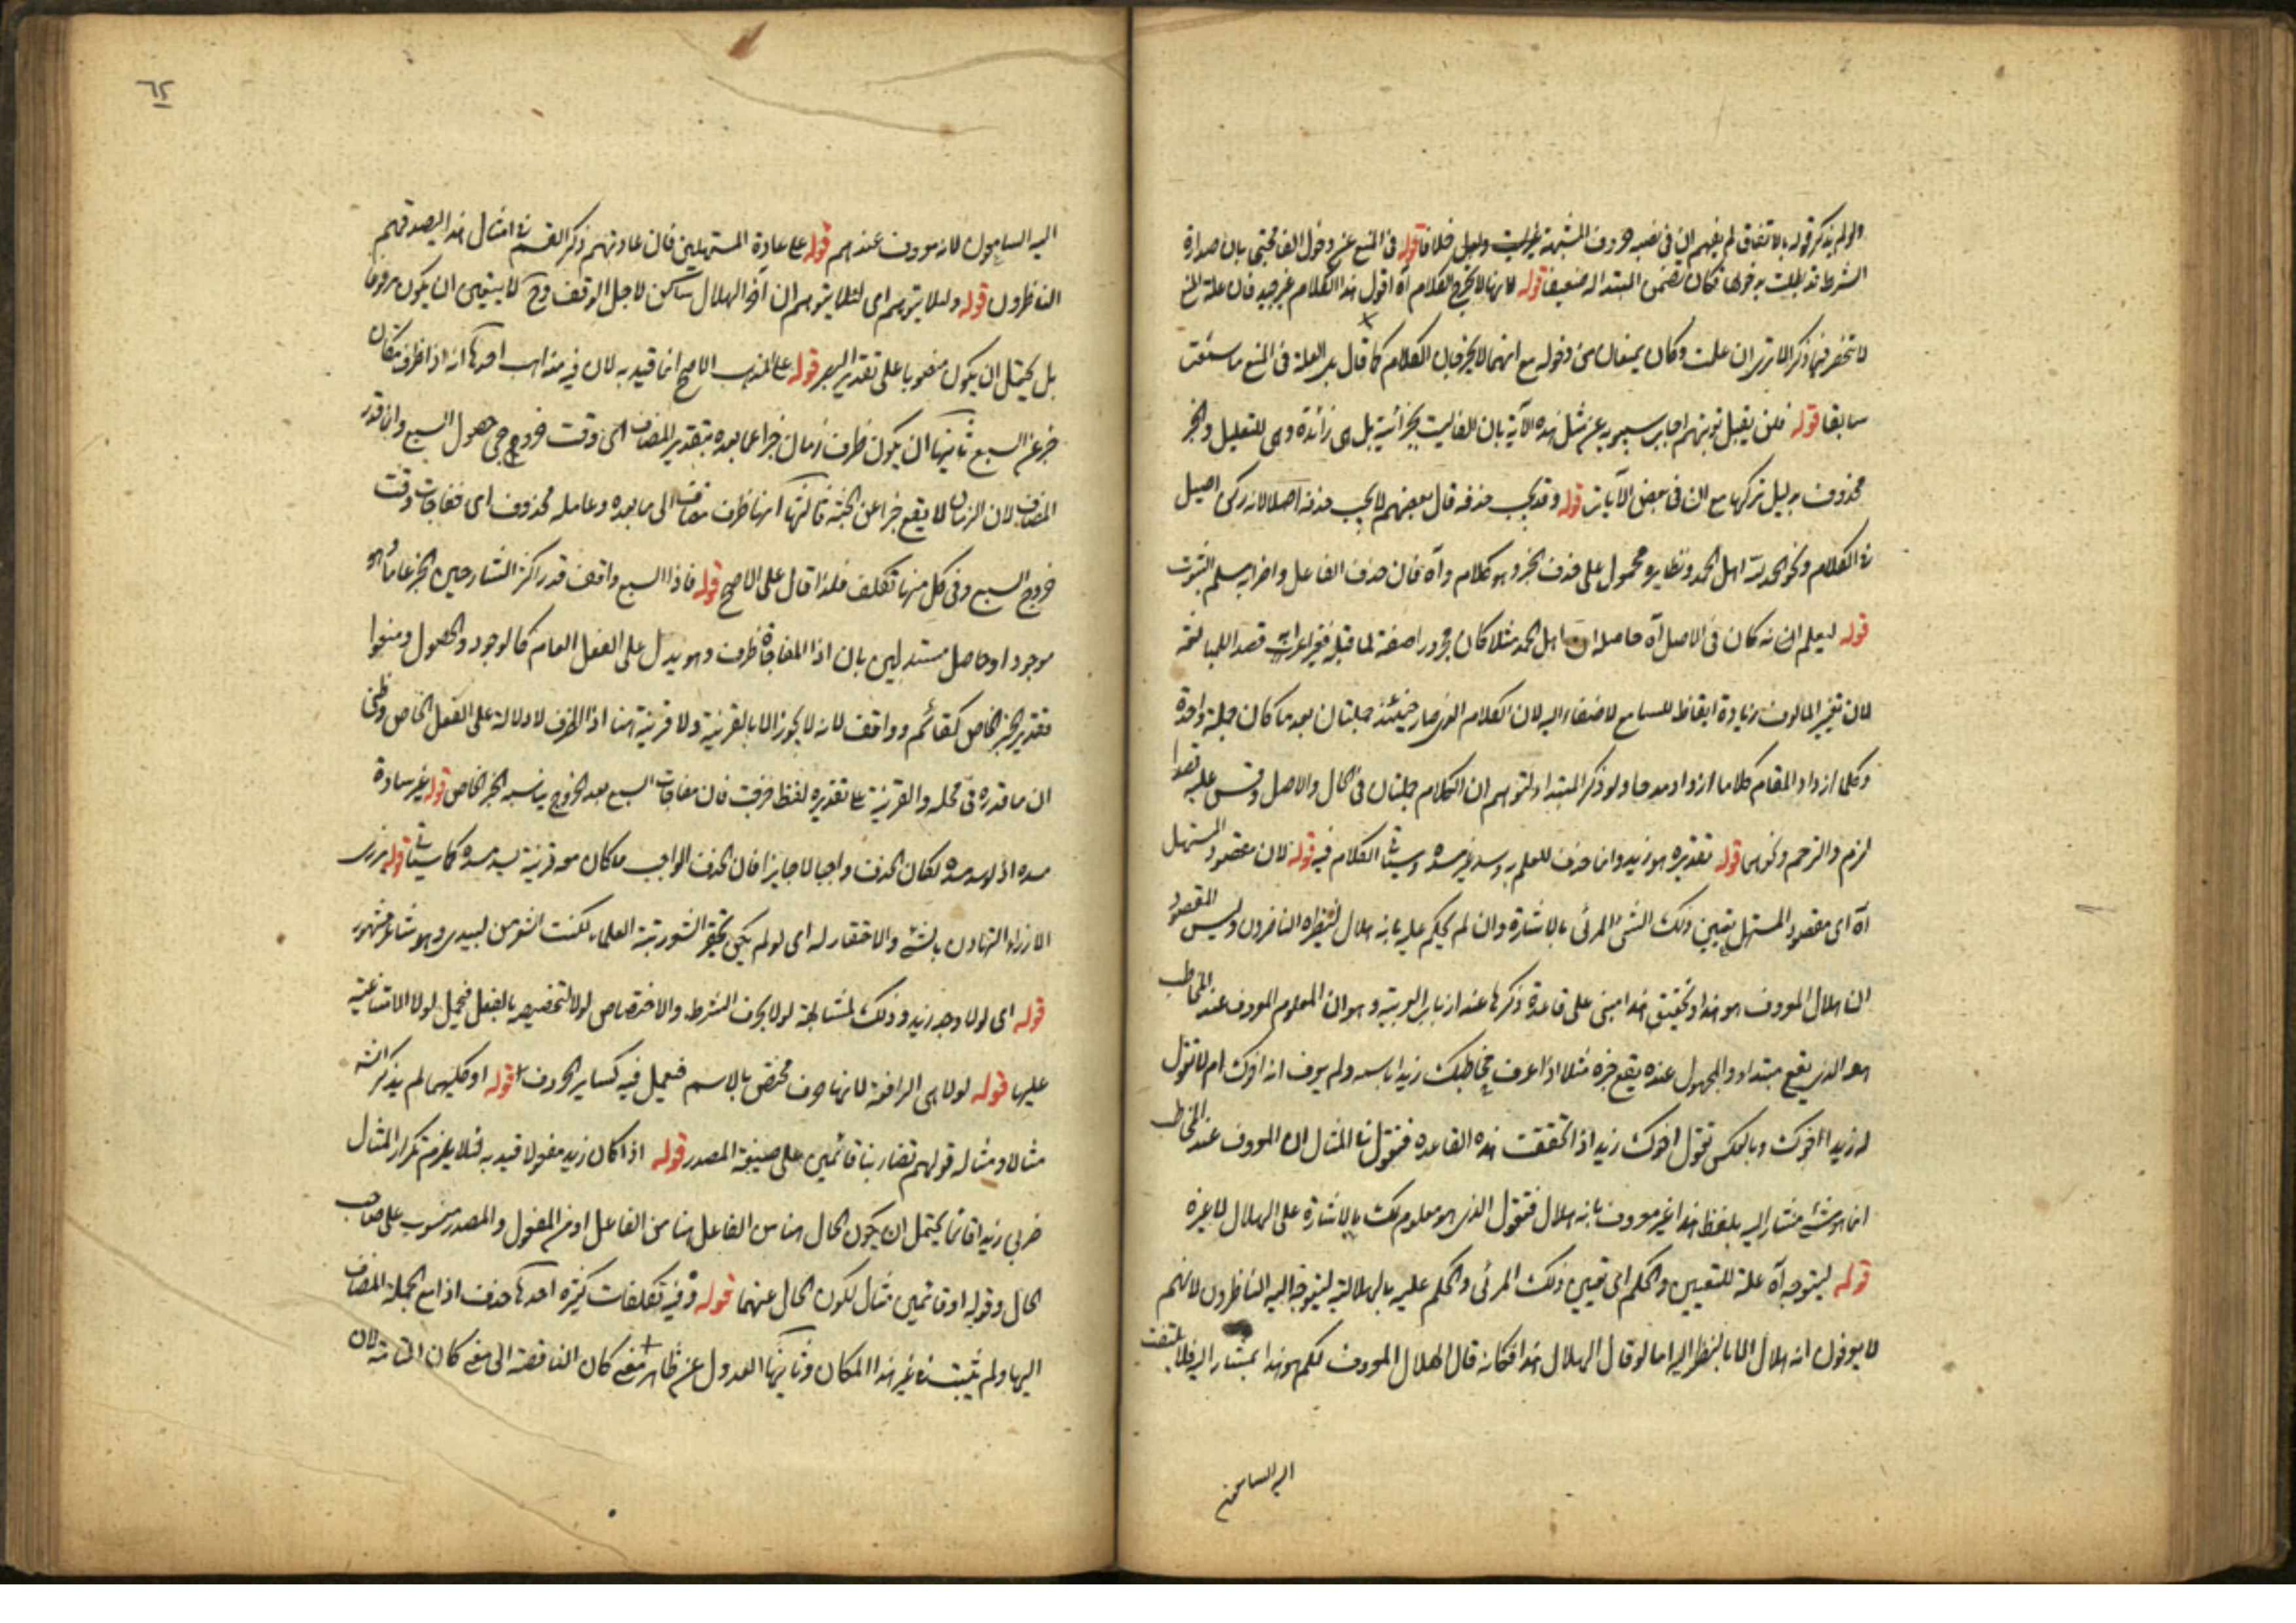 ولو لم يذكر قوله بالاتفاق لم يفهم ان في بقية حروف المشبهة خلافا قوله في المنع عن دخول الفا محتجا بان صدارة
الشرط قد بطلت بدخولها فكان تضمن المبتدا له ضعيفا قوله لانها لا يخرج الكلام آه اقول هذا الكلام غير جيد فان علة المنع
لا تنحصر فيما ذكر الا ترى ان علمت وكان يمنعان من دخوله مع انهما لا يخرجان الكلام كما قال بل العلة في المنع ما سمعت
سابقا قوله فلن يقبل توبتهم اجاب سيبويه عن مثل هذه الآية بان الفا ليست بجزائية بل هى زائدة وهى للتعليل والخبر
محذوف بدليل تركها مع ان في بعض الآيات قوله وقد يجب حذفه قال بعضهم لا يجب حذفه اصلا لانه ركن اصيل
في الكلام ونحو الحمد لله اهل الحمد ونظايره محمول على حذف الخبر وهو كلام واه فان حذف الفاعل واضرابه مسلم الثبوت
قوله ليعلم انه كان في الاصل آه حاصله ان اهل الحمد مثلا كان مجرورا صفة لما قبله فغير اعرابه قصدا للمبالغة
لان تغيير المالوف زيادة ايقاظ للسامع لاصغاء اليه لان الكلام الذى صار حينئذ جملتان بعد ما كان جملة واحدة
وكلما ازداد المقام كلاما ازداد مدحا ولو ذكر المبتدا لتوهم ان الكلام جملتان في الحال والاصل وقس عليه
الذم والترحم ونحوهما قوله تقديره هو زيد وانما حذف للعلم به وسد غيره مسده وسيأتى الكلام فيه قوله لان مقصود المستهل
آه اى مقصود المستهل تعيين ذلك الشئ المرئى بالاشارة وان لم يحكم عليه بانه هلال لينظره الناظرون وليس المقصود
ان الهلال المعروف هو هذا وتحقيق هذا مبنى على قاعدة ذكرها عند ارباب العربية وهو ان المعلوم المعروف عند المخاطب
هو الذى يقع مبتداء والمجهول عنده يقع خبره مثلا اذا عرف مخاطبك زيدا باسمه ولم يعرف انه اخوك ام لا تقول
له زيد اخوك وبالعكس تقول اخوك زيد اذا تحققت هذه القاعدة فنقول في المثال ان المعروف عند المخاطب
انما هو شئ مشار اليه بلفظ هذا غير معروف بانه هلال فتقول الذى هو معلوم لك بالاشارة على الهلال لا غيره
قوله ليتوجه آه علة للتعيين والحكم اى تعيين ذلك المرئى والحكم عليه بالهلالية ليتوجه اليه الناظرون لانهم
لا يعرفون انه هلال الا بالنظر اليه اما لو قال الهلال هذا فكانه قال الهلال المعروف لكم هو هذا بمشار اليه فلا يلتفت
اليه السامعون
٦٢
اليه السامعون لانه معروف عندهم قوله على عادة المستهلين فان عادتهم ذكر القسم في امثال هذا ليصدقهم
الناظرون قوله ولئلا يتوهم اى لئلا يتوهم ان آخر الهلال ساكن لاجل الوقف وح لا يتعين ان يكون مرفوعا
بل يحتمل ان يكون منصوبا على تقدير ابصر قوله على المذهب الاصح انما قيد به لان فيه مذاهب احدها انه اذا ظرف مكان
خبر عن السبع ثانيها ان يكون ظرف زمان خبرا عما بعده بتقدير المضاف اى وقت خروجى حصول السبع وانما قدر
المضاف لان الزمان لا يقع خبرا عن الجثة ثالثها انها ظرف مضاف الى ما بعده وعامله محذوف اى ففاجات وقت
خروج السبع وفى كل منها تكلف فلذا قال على الاصح قوله فاذا السبع واقف قدر اكثر الشارحين الخبر عاما وهو
موجود او حاصل مستدلين بان اذا المفاجاة ظرف وهو يدل على الفعل العام كالوجود والحصول ومنعوا
تقدير الخبر الخاص كقائم وواقف لانه لا يجوز الا بالقرينة ولا قرينة هنا اذ الظرف لا دلالة على الفعل الخاص وظنى
ان ما قدره في محله والقرينة على تقديره لفظ خرجت فان مفاجات السبع بعد الخروج يناسبه الخبر الخاص قوله غير سادة
مسده اذ لو سد مسده لكان الحذف واجبا لا جايزا فان الحذف الواجب ما كان معه قرينة يسد مسده كما سياتى قوله يزرى
الازراء التهاون بالشئ والاحتقار له اى لو لم يكن تحقير الشعر رتبة العلماء لكنت اشعر من لبيد وهو شاعر مشهور
قوله اى لولا وجد زيد وذلك لمشابهة لولا بحرف الشرط والاختصاص لولا التحضيضية بالفعل فيحمل لولا الامتناعية
عليها قوله لولا هى الرافعة لانها حرف مختص بالاسم فيعمل فيه كساير الحروف قوله او كليهما لم يذكر الشه
مثالا ومثاله قولهم تضاربنا قائمين على صيغة المصدر قوله اذا كان زيد مفعولا قيد به لئلا يلزم تكرار المثال
ضربى زيدا قائما يحتمل ان يكون الحال هنا من الفاعل او من المفعول والمصدر منسوب على صاحب
الحال وقوله او قائمين مثال لكون الحال عنهما قوله وفيه تكلفات كثيرة احدها حذف اذا مع الجملة المضاف
اليها ولم يثبت في غير هذا المكان وثانيها العدول عن ظاهر معنى كان الناقصة الى معنى كان التامة لان